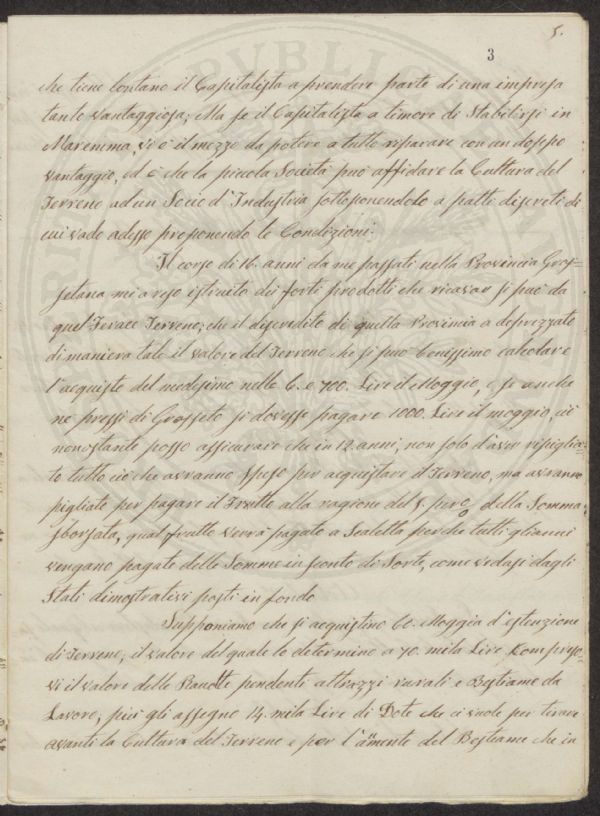 5.
3
che tiene lontano il Capitalista a prendere parte di una impresa
tanto vantaggiosa; Ma se il Capitalista a timore di Stabilirsi in
Maremma, vi è il mezzo da potere a tutto riparare con un doppio
vantaggio, ed è che la piccola Società può affidare la Cultura del
Terreno ad un Socio d'Industria sottoponendolo a patti discreti di
cui vado adesso proponendo le Condizioni.
Il corso di 16. anni da me passati nella Provincia Gros=
setana mi a reso istruito dei forti prodotti che ricavar si può da
quel Ferace Terreno; che il discredito di quella Provincia a deprezzato
di maniera tale il valore del Terreno che si può benissimo calcolare
l'acquisto del medesimo nelle 6. e 700. Lire il Moggio, e se anche
ne pressi di Grosseto si dovesse pagare 1000. Lire il moggio, ciò
nonostante posso assicurare che in 12 anni, non solo d'aver ripiglia=
to tutto ciò che avranno speso per acquistare il Terreno, ma avranno
pigliato per pagare il Frutto alla ragione del 5. per% della Somma
sborsata, qual frutto verrà pagato a Scaletta perche tutti gli anni
vengano pagate delle Somme in sconto di Sorte, come vedasi dagli
Stati dimostrativi posti in fondo
Supponiamo che si acquistino 60. Moggia d'estenzione
di Terreno, il valore del quale lo determino a 70. mila Lire, Kompreso=
vi il valore delle Raccolte pendenti attrazzi rurali e Bestiame da
Lavoro, più gli assegno 14. mila Lire di Dote che ci vuole per tirare
avanti la Cultura del Terreno e per l'aumento del Bestiame che in